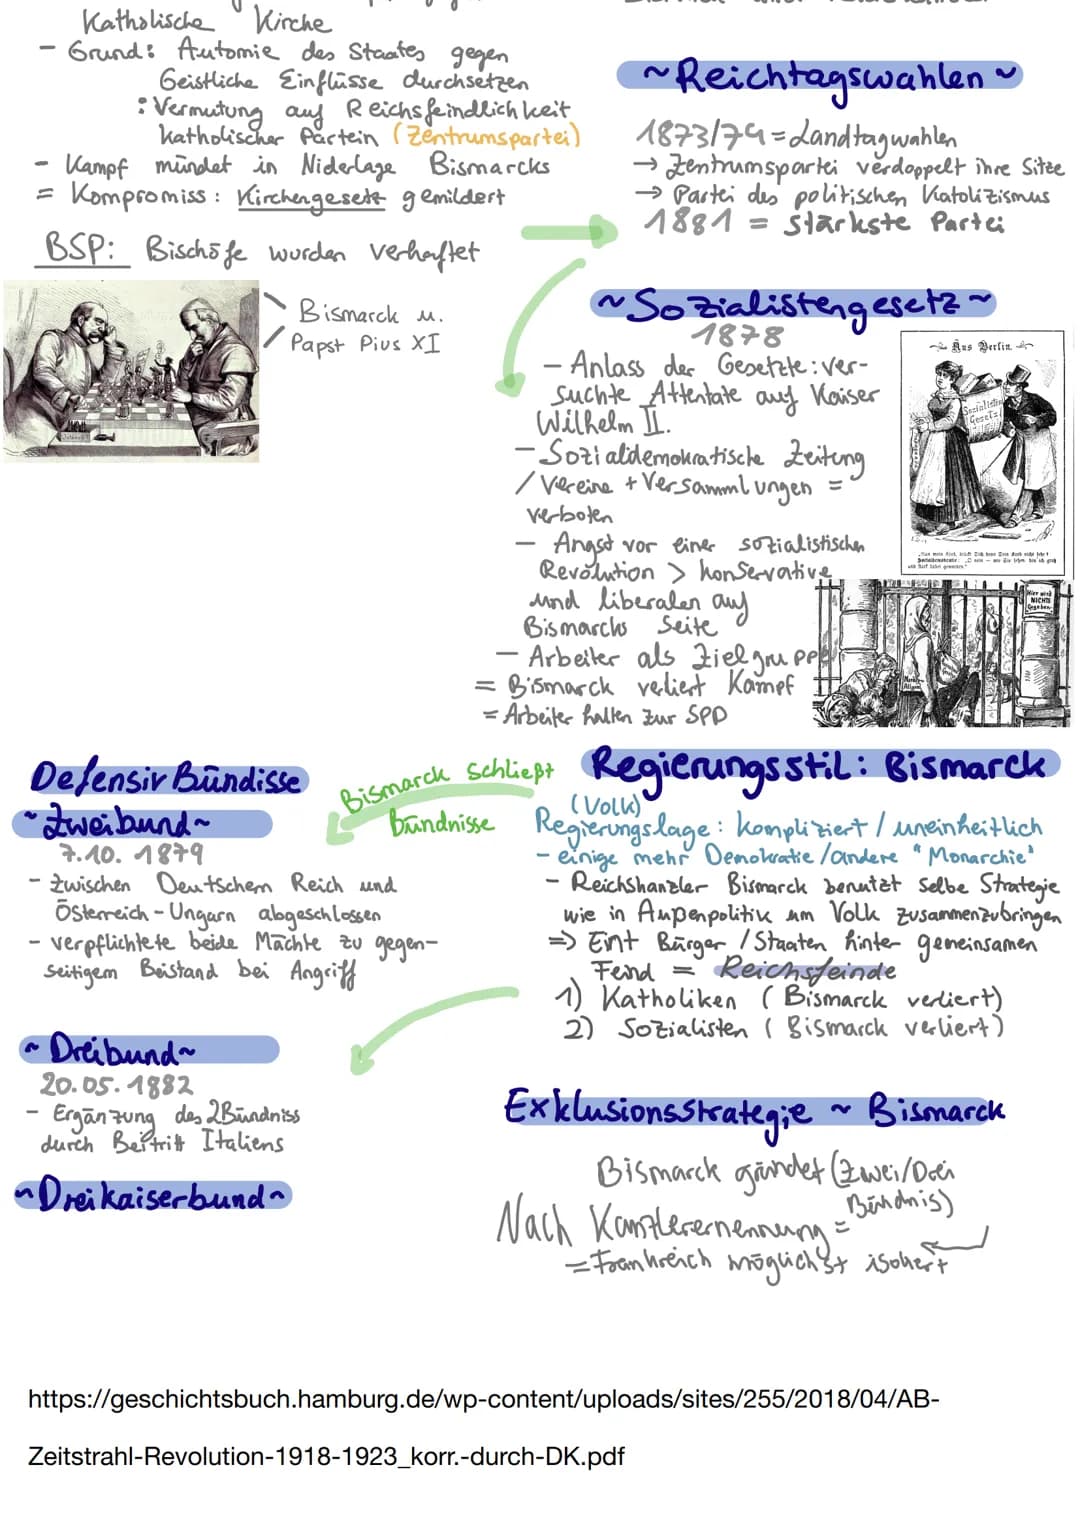 Katholische Kirche
- Grund: Automie des Staates gegen
Geistliche Einflüsse durchsetzen
: Vermutung auf Reichsfeindlichkeit
katholischer Partein (Zentrumspartei)
- Kampf mündet in Niderlage Bismarcks
= Kompromiss: Kirchengesetz gemildert
BSP: Bischöfe wurden verhaftet
Bismarck u.
Papst Pius XI
~Reichtagswahlen~
1873/74 = Landtagwahlen
→ Zentrumspartei verdoppelt ihre Sitze
→ Partei des politischen Katolizismus
1881 = stärkste Partei
~Sozialistengesetz~
1878
- Anlass der Gesetzte: ver-
suchte Attentate auf Kaiser
Wilhelm II.
- Sozialdemokratische Zeitung
/ Vereine + Versammlungen =
verboten
- Angst vor einer sozialistischen
Revolution > konservative
und liberalen auf
Bismarcks Seite
- Arbeiter als Zielgruppe
= Bismarck verliert Kampf
= Arbeiter halten zur SPD
Aus Berlin.
Sozialisten
Gesetz
Hier wird
NICHTS
Gegeben
Defensiv Bündisse
~Zweibund~
7.10. 1879
- zwischen Deutschem Reich und
Österreich-Ungarn abgeschlossen
- verpflichtete beide Mächte zu gegen-
seitigem Beistand bei Angriff
Bismarck schließt
bündnisse
~Dreibund~
20.05.1882
- Ergänzung des 2Bündniss
durch Beitritt Italiens
~Dreikaiserbund~
Regierungsstil: Bismarck
(Volk)
Regierungslage: kompliziert / uneinheitlich
- einige mehr Demokratie / andere "Monarchie"
- Reichskanzler Bismarck benutzt selbe Strategie
wie in Außenpolitik um Volk zusammenzubringen
=> Eint Bürger / Staaten hinter gemeinsamen
Feind = Reichsfeinde
1) Katholiken (Bismarck verliert)
2) Sozialisten (Bismarck verliert)
Exklusionsstrategie ~ Bismarck
Bismarck gründet (Zwei/Drei
Bündnis)
Nach Kanzlerernennung =
= Frankreich möglichst isoliert
https://geschichtsbuch.hamburg.de/wp-content/uploads/sites/255/2018/04/AB-
Zeitstrahl-Revolution-1918-1923_korr.-durch-DK.pdf